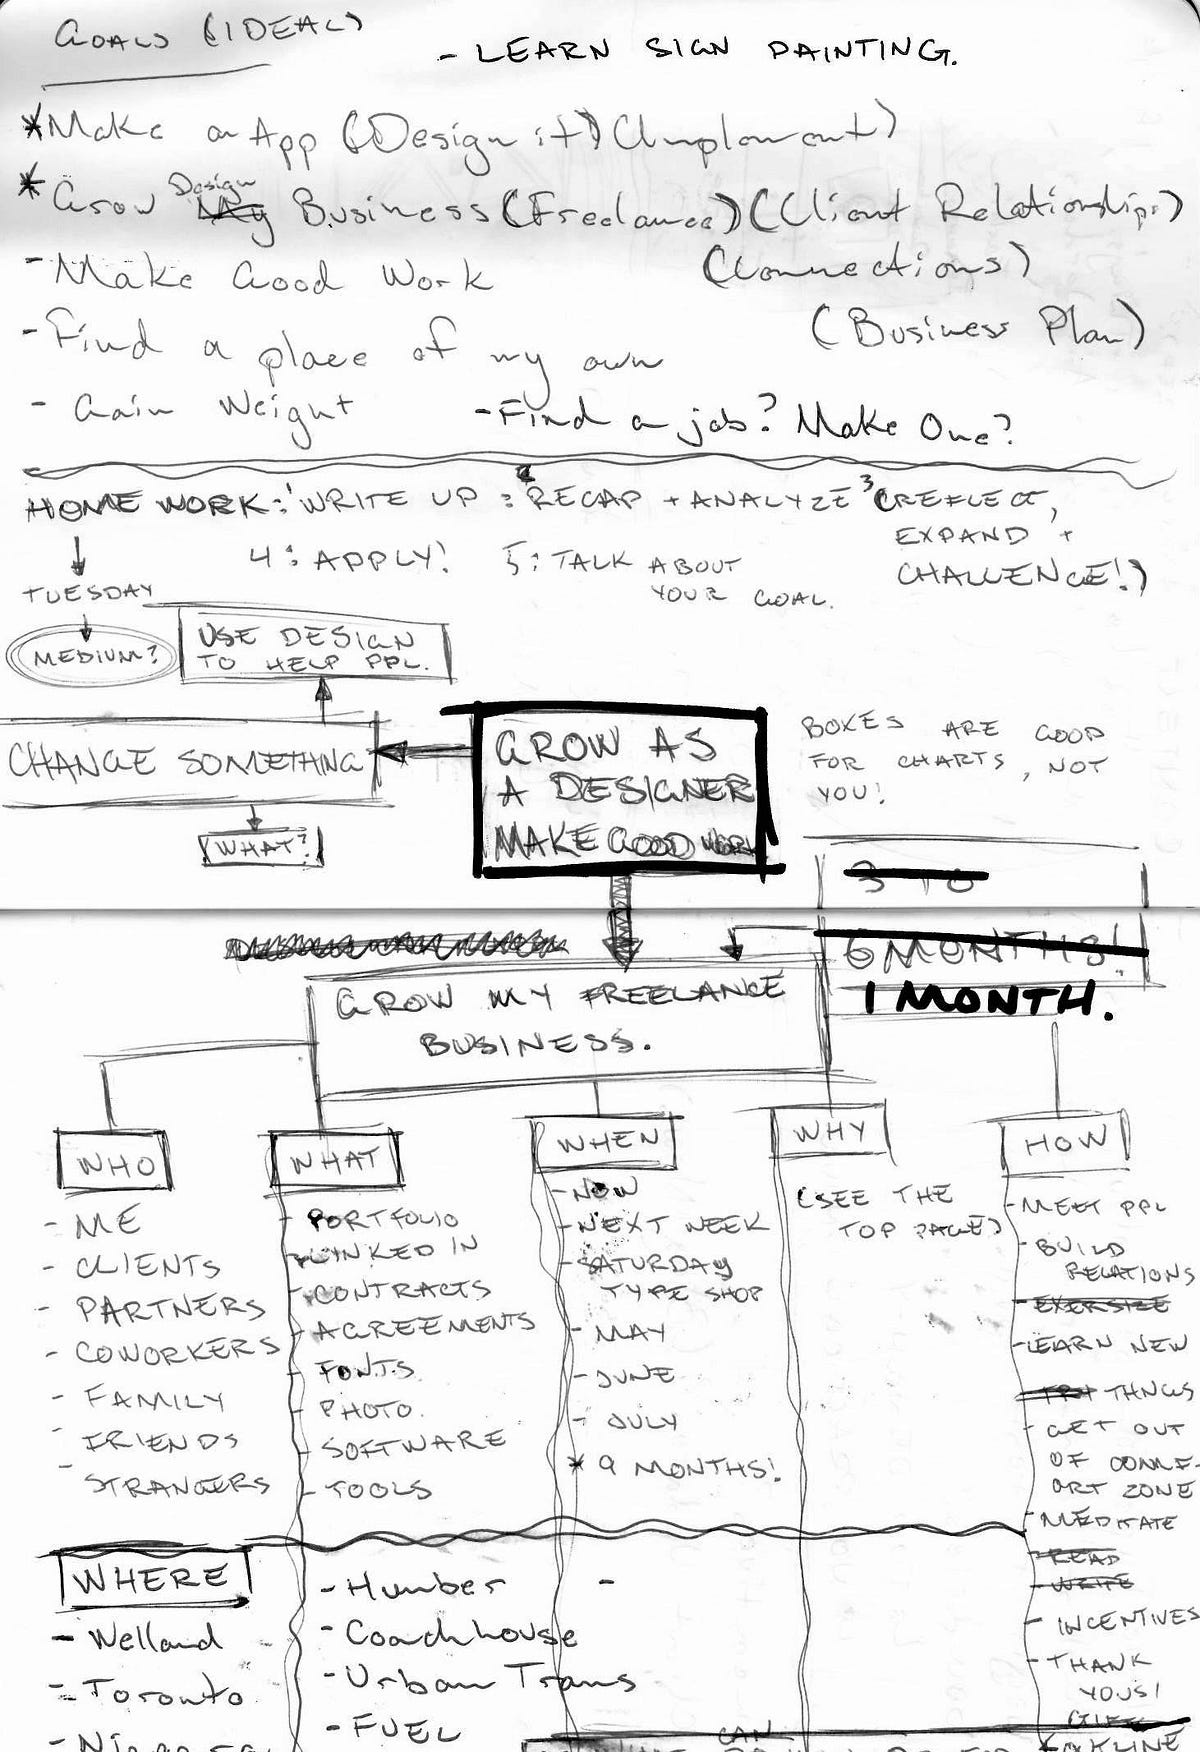 GOALS (IDEAL)
- LEARN SIGN PAINTING.
*Make an App (Design it) (Implement)
Design
*Grow My Business (Freelance) (Client Relationships)
- Make Good Work
(Connections)
- Find a place of my own
(Business Plan)
- Gain Weight
- Find a job? Make One?
HOMEWORK: 1 WRITE UP 2: RECAP + ANALYZE 3 (REFLECT,
EXPAND +
CHALLENGE!)
4: APPLY! 5: TALK ABOUT
YOUR GOAL.
TUESDAY
MEDIUM?
USE DESIGN
TO HELP PPL.
CHANGE SOMETHING
WHAT?
GROW AS
A DESIGNER
MAKE GOOD WORK
BOXES ARE GOOD
FOR CHARTS, NOT
YOU!
6 MONTHS!
1 MONTH.
GROW MY FREELANCE
BUSINESS.
WHO
- ME
- CLIENTS
- PARTNERS
- COWORKERS
- FAMILY
- FRIENDS
- STRANGERS
WHAT
- PORTFOLIO
- LINKED IN
- CONTRACTS
- AGREEMENTS
- FONTS
- PHOTO
- SOFTWARE
- TOOLS
WHEN
- NOW
- NEXT WEEK
- SATURDAY
TYPE SHOP
- MAY
- JUNE
- JULY
* 9 MONTHS!
WHY
(SEE THE
TOP PAGE)
HOW
- MEET PPL
- BUILD
RELATIONS
- EXERSIZE
- LEARN NEW
TRY THNGS
- GET OUT
OF COMF-
ORT ZONE
- MEDITATE
- READ
- WRITE
- INCENTIVES
- THANK
YOUS!
WHERE
- Welland
- Toronto
- Humber
-
- Coachhouse
- Urban Trans
- FUEL
CAN